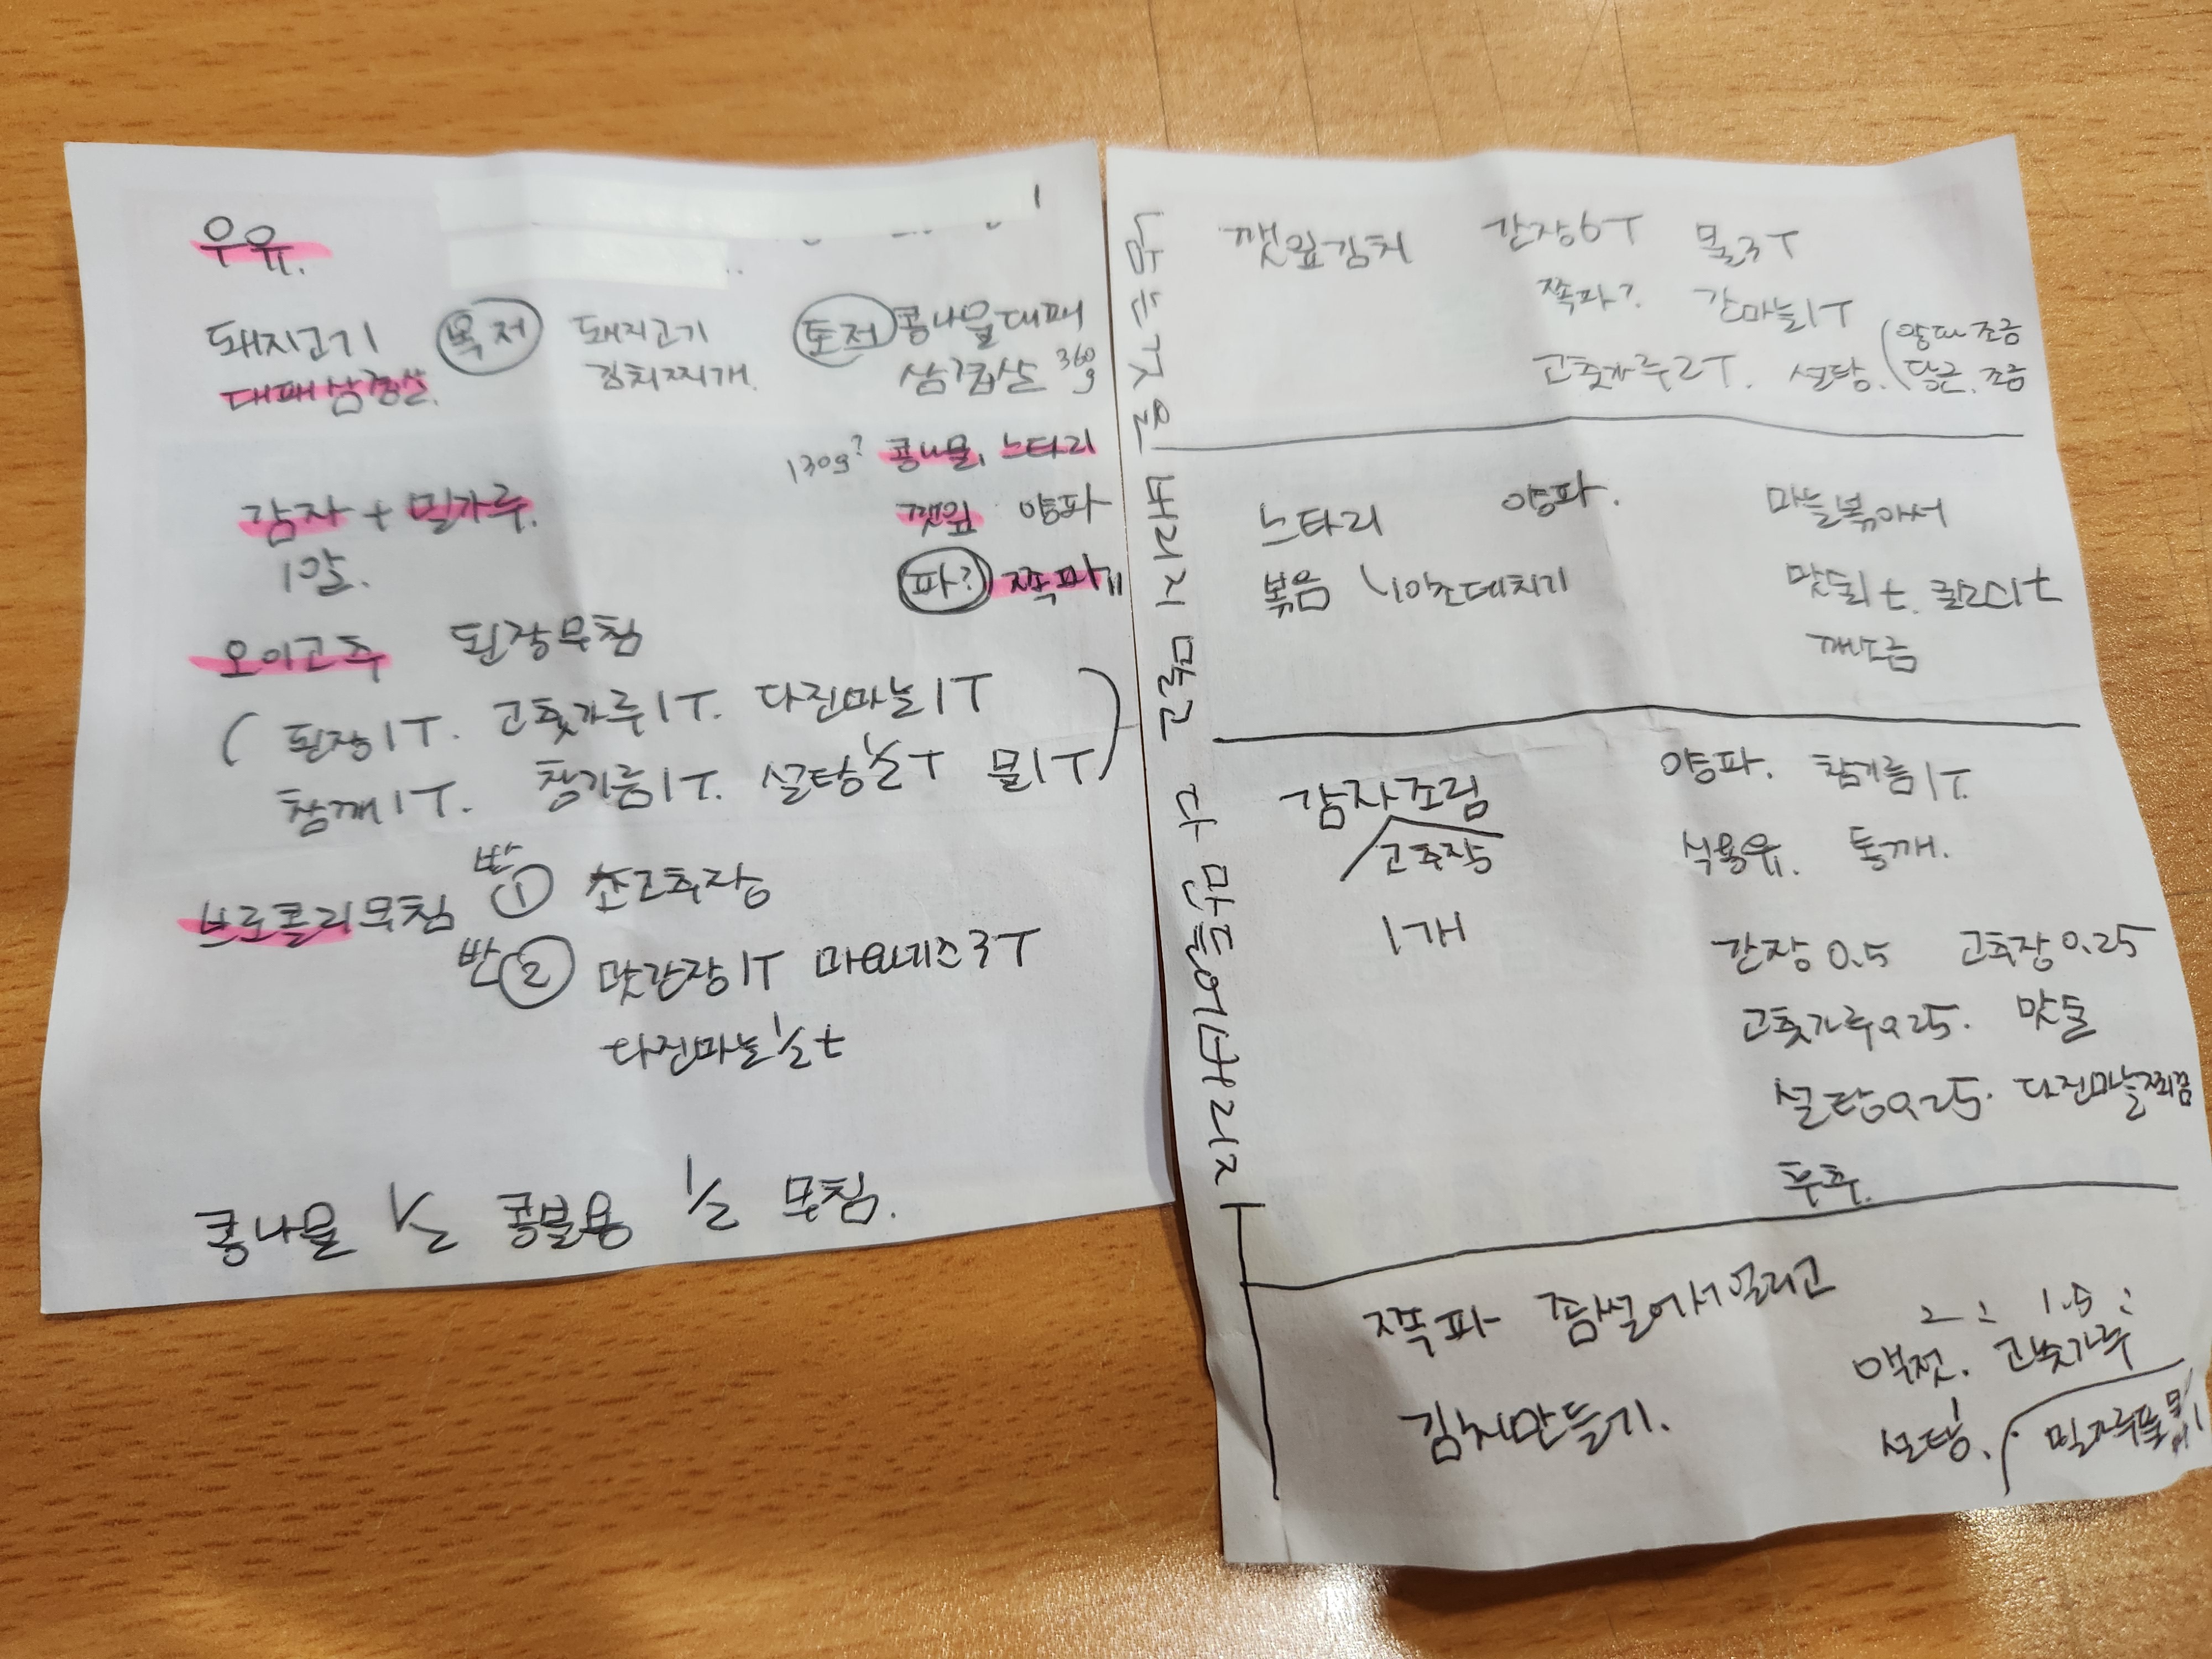 우유.
돼지고기 목저 돼지고기 토저 콩나물대패
대패삼겹살. 김치찌개. 삼겹살 360g
130g? 콩나물, 느타리
감자 + 밀가루. 깻잎 양파
1알. 파? 쪽파
오이고추 된장무침
( 된장1T. 고춧가루1T. 다진마늘1T
참깨1T. 참기름1T. 설탕½T 물1T )
브로콜리무침 반 ① 초고추장
반 ② 맛간장1T 마요네즈3T
다진마늘½t
콩나물 ½ 콩불용 ½ 무침.
남는거은 버리지 말고 다 만들어버리지
깻잎김치 간장6T 물3T
쪽파? 간마늘1T
고춧가루2T. 설탕. (양파 조금
당근. 조금
느타리 양파. 마늘볶아서
볶음 10초데치기 맛술1t. 굴소스1t
깨소금
감자조림 양파. 참기름1T.
고추장 식용유. 통깨.
1개 간장0.5 고추장0.25
고춧가루0.25. 맛술
설탕0.25. 다진마늘찌끔
후추.
쪽파 쫑쫑썰어서 말리고 2 : 1.5 :
액젓. 고춧가루
김치만들기. 설탕. 밀가루풀